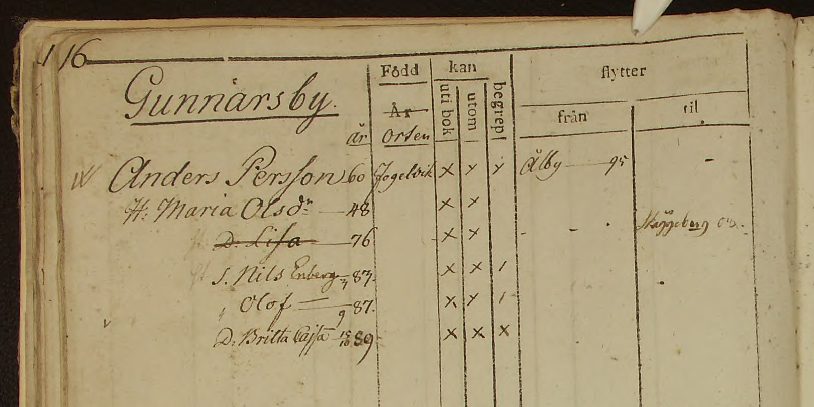 116
Född kan flytter
Gunnarsby.
uti bok utom begrep
År från til
år Orten
Anders Persson 60 Fogelvik x x x Ålby — 95 —
H: Maria Olsdr — 48 x x
D: Lisa — 76 x x - - - Skäggeberg
S. Nils Enberg 83 x x /
" Olof — 9 87. x x /
D: Britta Cajsa 15/10 89 x x x